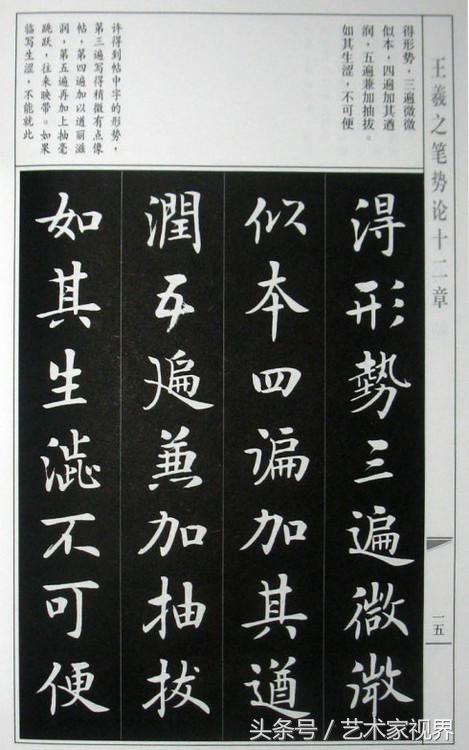 王羲之笔势论十二章
一五
得形势，三遍微微
似本，四遍加其遒
润，五遍兼加抽拔。
如其生涩，不可便
许得到帖中字的形势，
第三遍写得稍微有点像
帖，第四遍加以遒丽滋
润，第五遍再加上抽毫
跳跃，往来映带。如果
临写生涩，不能就此
淂形勢三遍微微
似本四遍加其遒
潤五遍兼加抽拔
如其生澁不可便
头条号／艺术家视界